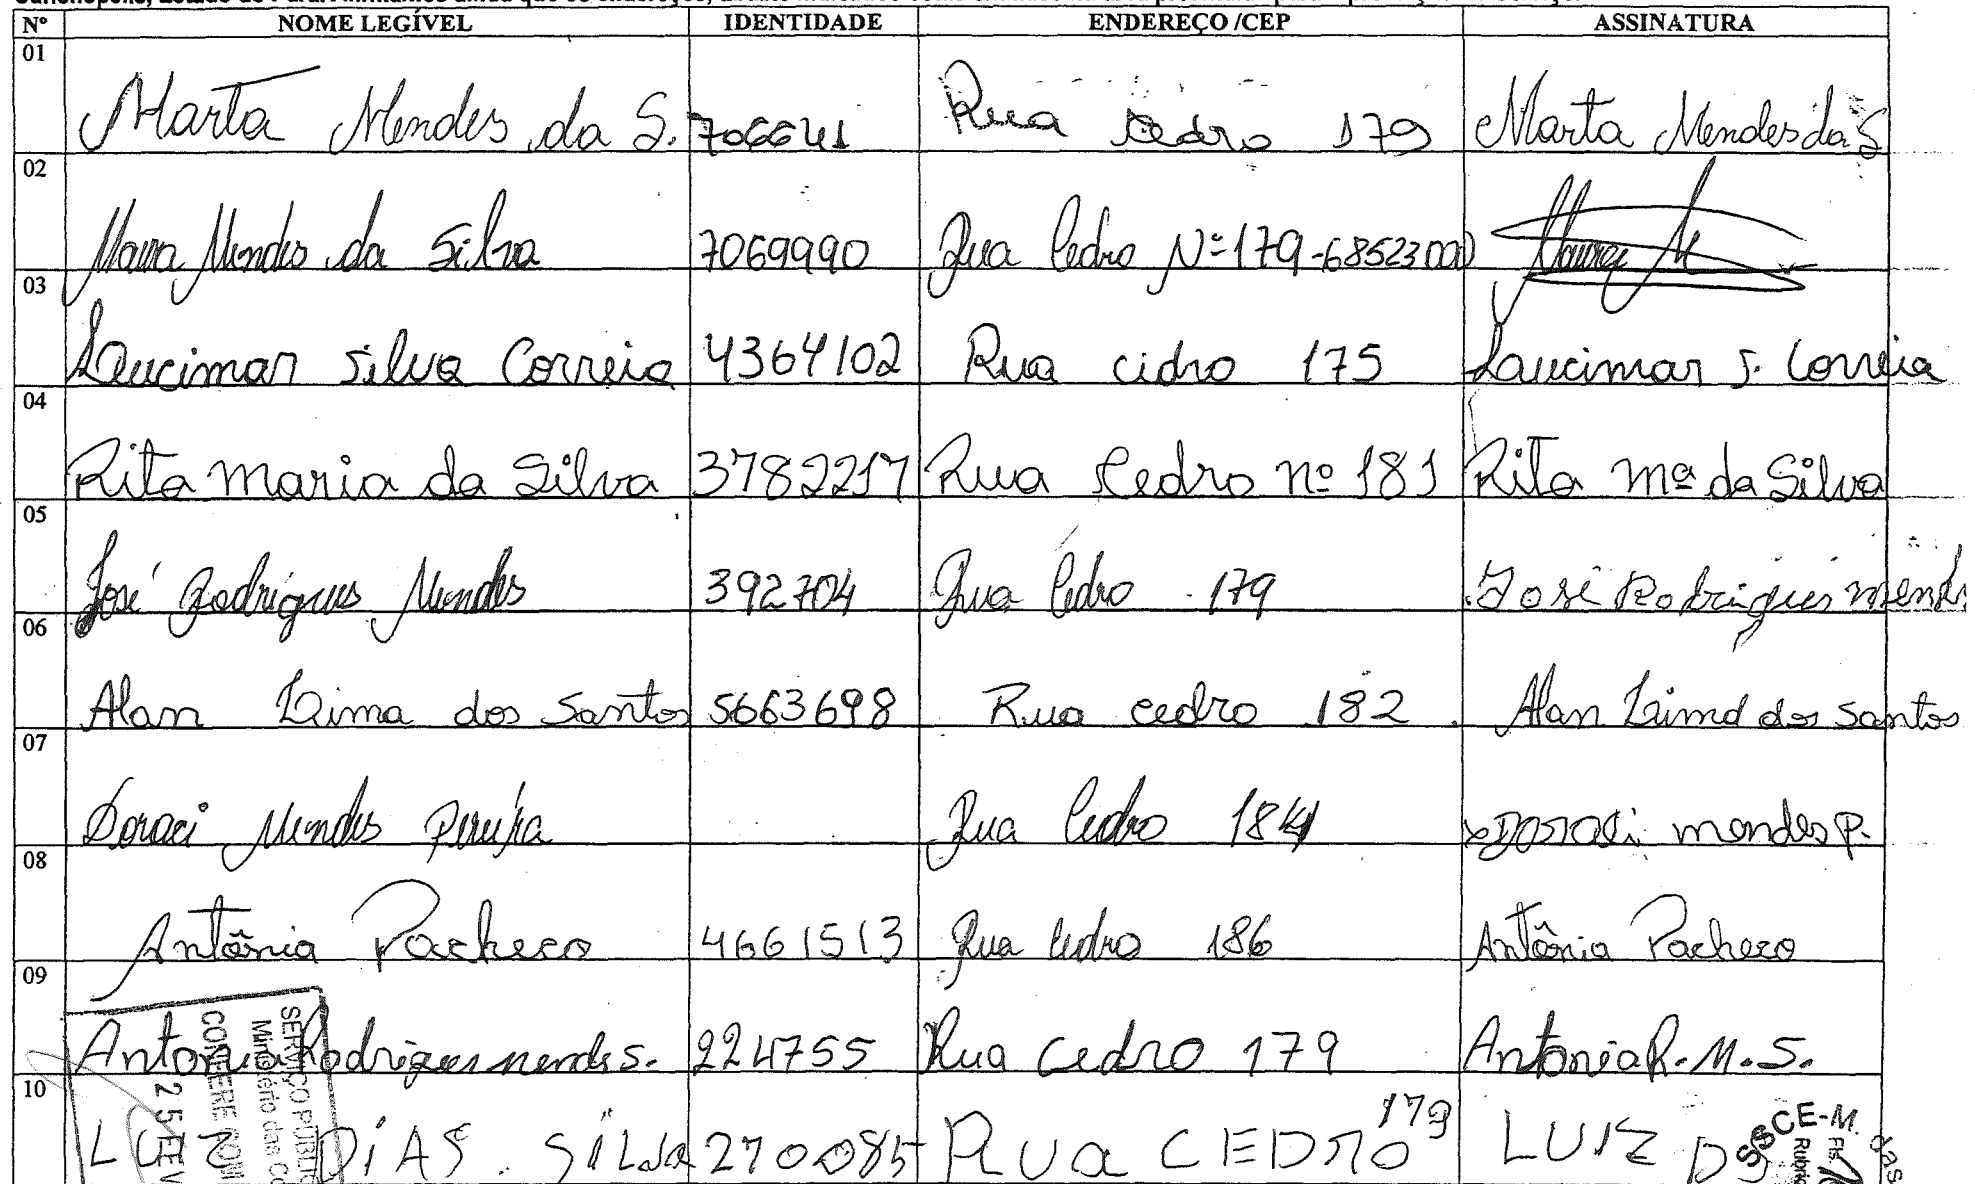 Nº NOME LEGÍVEL IDENTIDADE ENDEREÇO /CEP ASSINATURA
01 Marta Mendes da S. 706641 Rua Cedro 179 Marta Mendes da S
02 Maura Mendes da Silva 7069990 Rua Cedro Nº 179-68523000
03 Laucimar Silva Correia 4364102 Rua cidro 175 Laucimar S. Correia
04 Rita Maria da Silva 3782217 Rua Cedro nº 181 Rita Mª da Silva
05 José Rodrigues Mendes 392704 Rua Cedro 179 José Rodrigues mend
06 Alan Lima dos Santos 5663698 Rua cedro 182 Alan Lima dos Santos
07 Doraci Mendes Pereira Rua Cedro 184 Doraci mendes P.
08 Antônia Pacheco 4661513 Rua Cedro 186 Antônia Pacheco
09 Antonia Rodrigues mendes S. 224755 Rua Cedro 179 Antonia R. M. S.
10 LUIZ DIAS SILVA 270085 RUA CEDRO 179 LUIZ D
SERVIÇO PÚBLI
Ministério das Co
CONFERE COM
25 FEV
SSCE-M. das
Fls.
Rubric